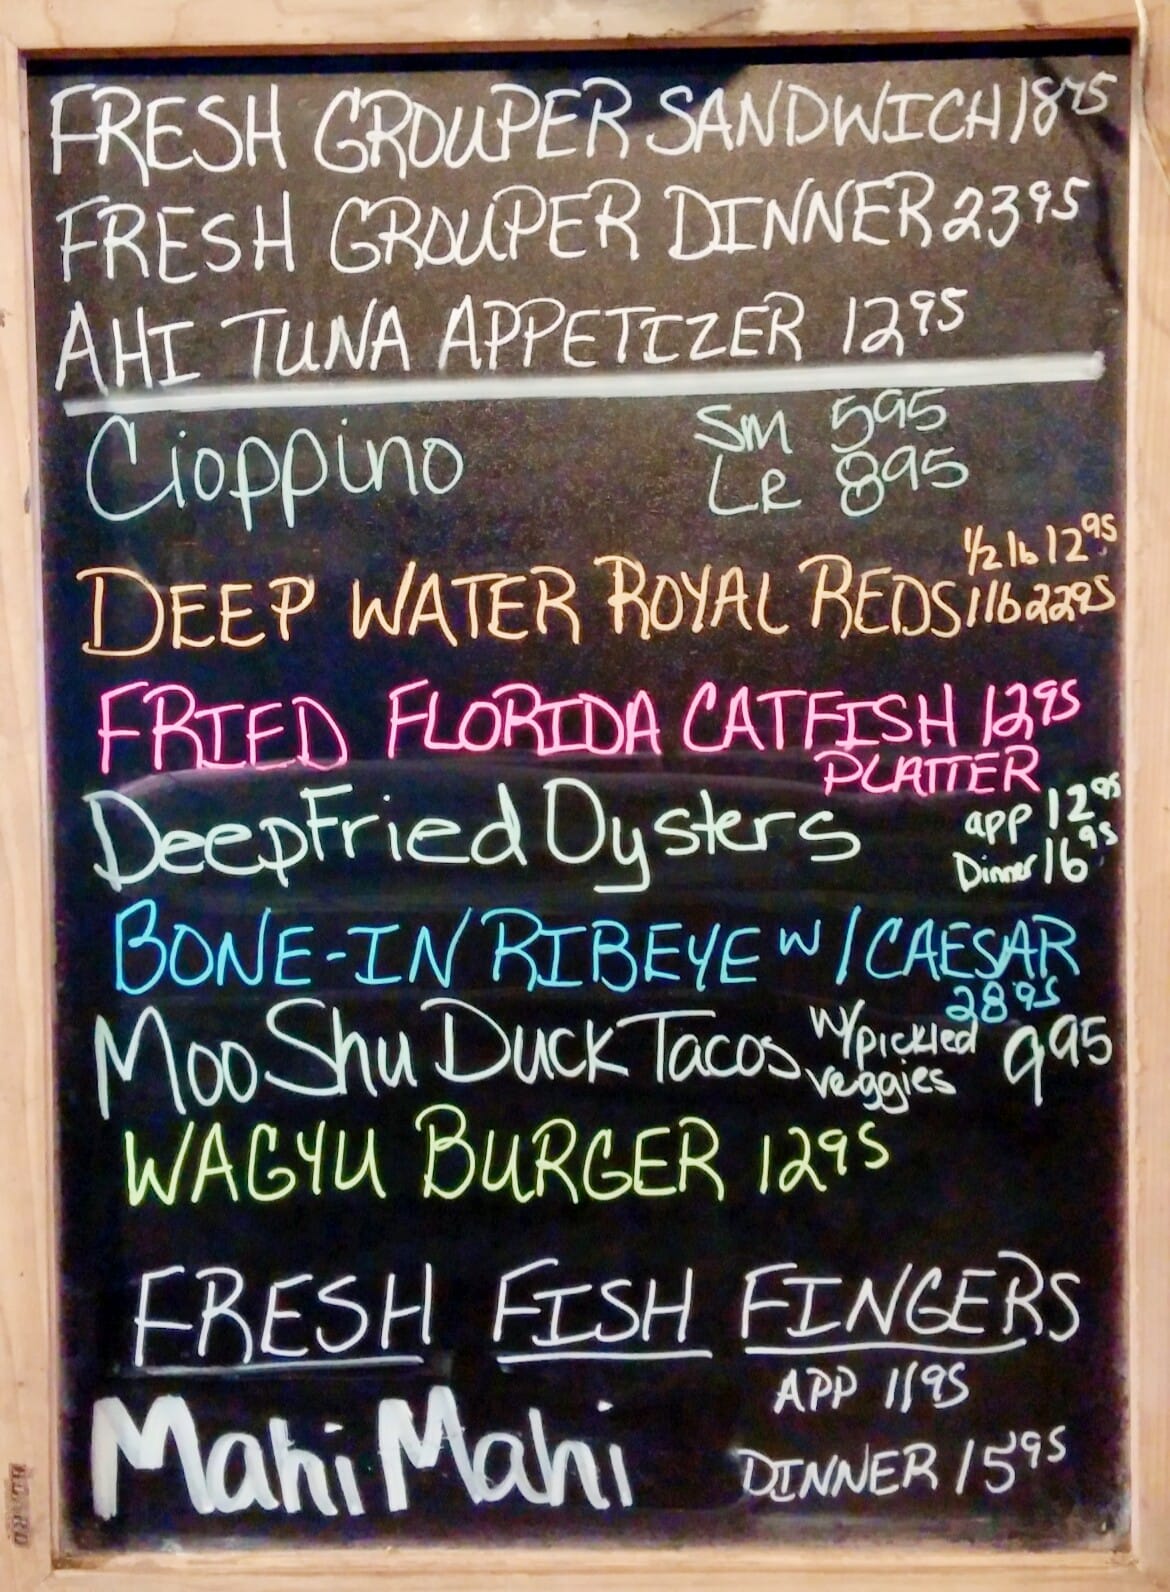 FRESH GROUPER SANDWICH 18 75
FRESH GROUPER DINNER 23 95
AHI TUNA APPETIZER 12 95
Cioppino Sm 595
LR 895
DEEP WATER ROYAL REDS 1/2 lb 12 95
1 lb 2295
FRIED FLORIDA CATFISH 1295
PLATTER
Deep Fried Oysters app 12 95
Dinner 16 95
BONE-IN RIBEYE W/CAESAR
28 95
Moo Shu Duck Tacos W/pickled veggies 9 95
WAGYU BURGER 1295
FRESH FISH FINGERS
APP 1195
Mahi Mahi DINNER 15 95